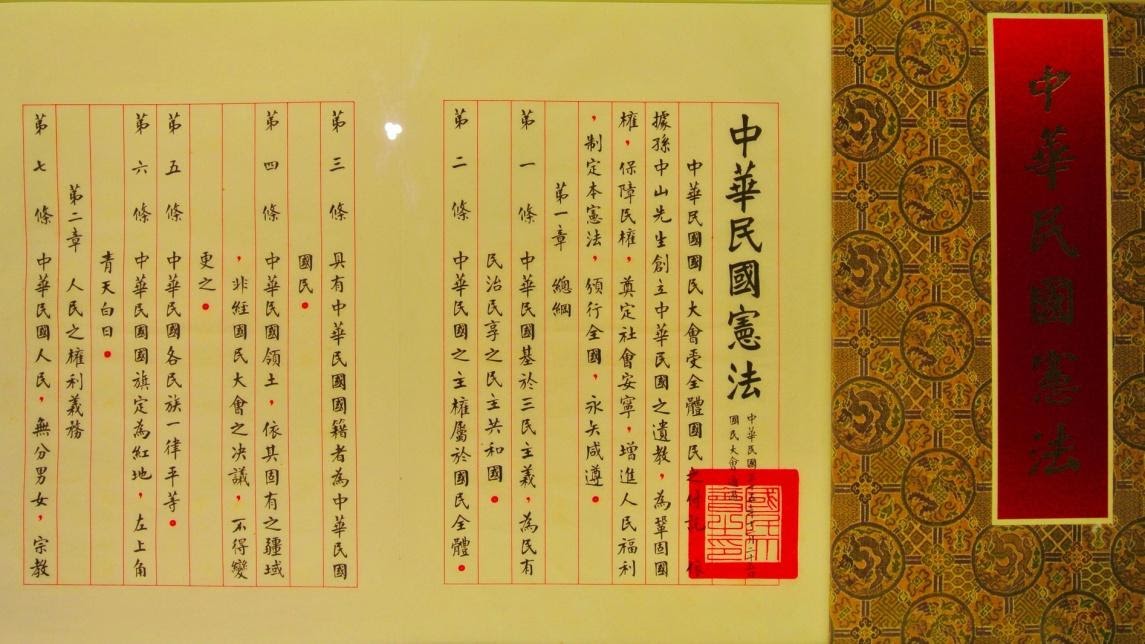 中華民國憲法
中華民國憲法
中華民國
國民大會
國民大會之印
中華民國國民大會受全體國民之付託 依
據孫中山先生創立中華民國之遺教，為鞏固國
權，保障民權，奠定社會安寧，增進人民福利
，制定本憲法，頒行全國，永矢咸遵。
第一章 總綱
第一條 中華民國基於三民主義，為民有
民治民享之民主共和國。
第二條 中華民國之主權屬於國民全體。
第三條 具有中華民國國籍者為中華民國
國民。
第四條 中華民國領土，依其固有之疆域
，非經國民大會之決議，不得變
更之。
第五條 中華民國各民族一律平等。
第六條 中華民國國旗定為紅地，左上角
青天白日。
第二章 人民之權利義務
第七條 中華民國人民，無分男女，宗教